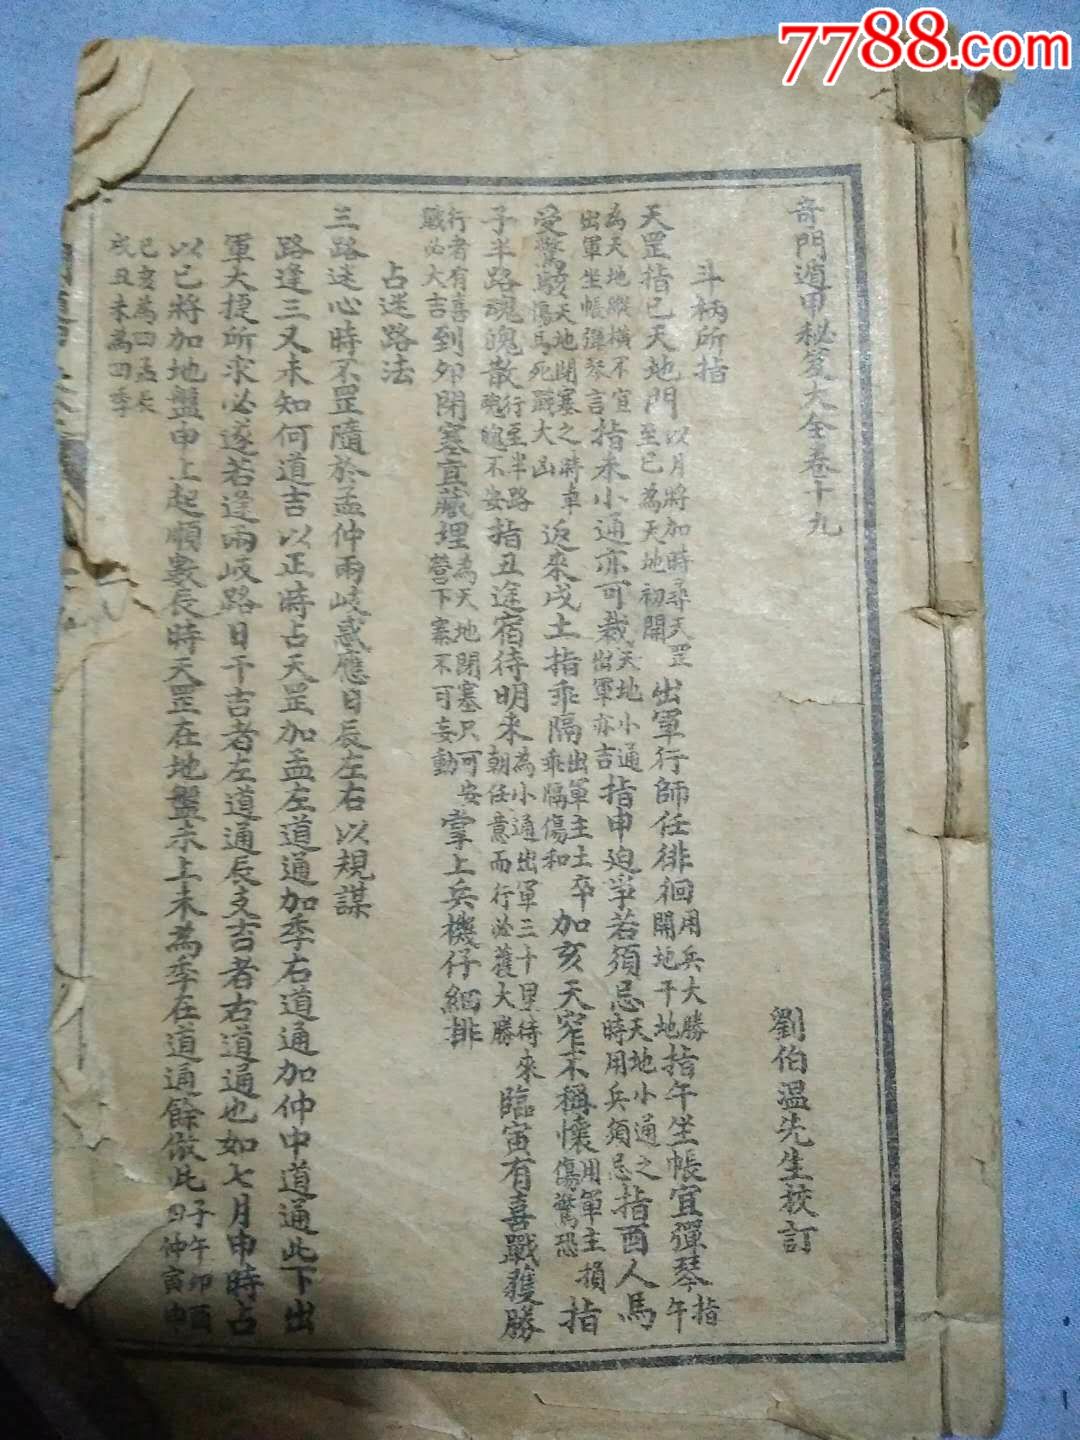 7788.com
奇門遁甲秘笈大全卷十九
劉伯温先生校訂
斗柄所指
天罡指巳天地門以月將加時尋天罡至巳為天地初開出軍行師任徘徊用兵大勝開地干地指午坐帳宜彈琴指午
為天地縱橫不宜出軍坐帳彈琴言指未小通亦可裁天地小通出軍亦吉指申迫爭若須忌天地小通之時用兵須忌指酉人馬
受驚駭天地閉塞之時車傷馬死戰大凶返來戌土指乖隔出軍主士卒乖隔傷和加亥天窂不稱懷用軍主損傷驚恐指
子半路魂魄散行至半路魂魄不安指丑途宿待明来為小通出軍三十里待來朝任意而行必獲大勝臨寅有喜戰獲勝
行者有喜戰必大吉到卯閉塞宜藏埋為天地閉塞只可安營下寨不可妄動掌上兵機仔細排
占迷路法
三路迷心時不罡隨於孟仲兩岐惑應日辰左右以規謀
路逢三叉未知何道吉以正時占天罡加孟左道通加季右道通加仲中道通此下出
軍大捷所求必遂若逢兩岐路日干吉者左道通辰支吉者右道通也如七月申時占
以巳將加地盤申上起順數辰時天罡在地盤未上未為季在道通餘倣此子午卯酉四仲寅申
巳亥為四孟辰戌丑未為四季